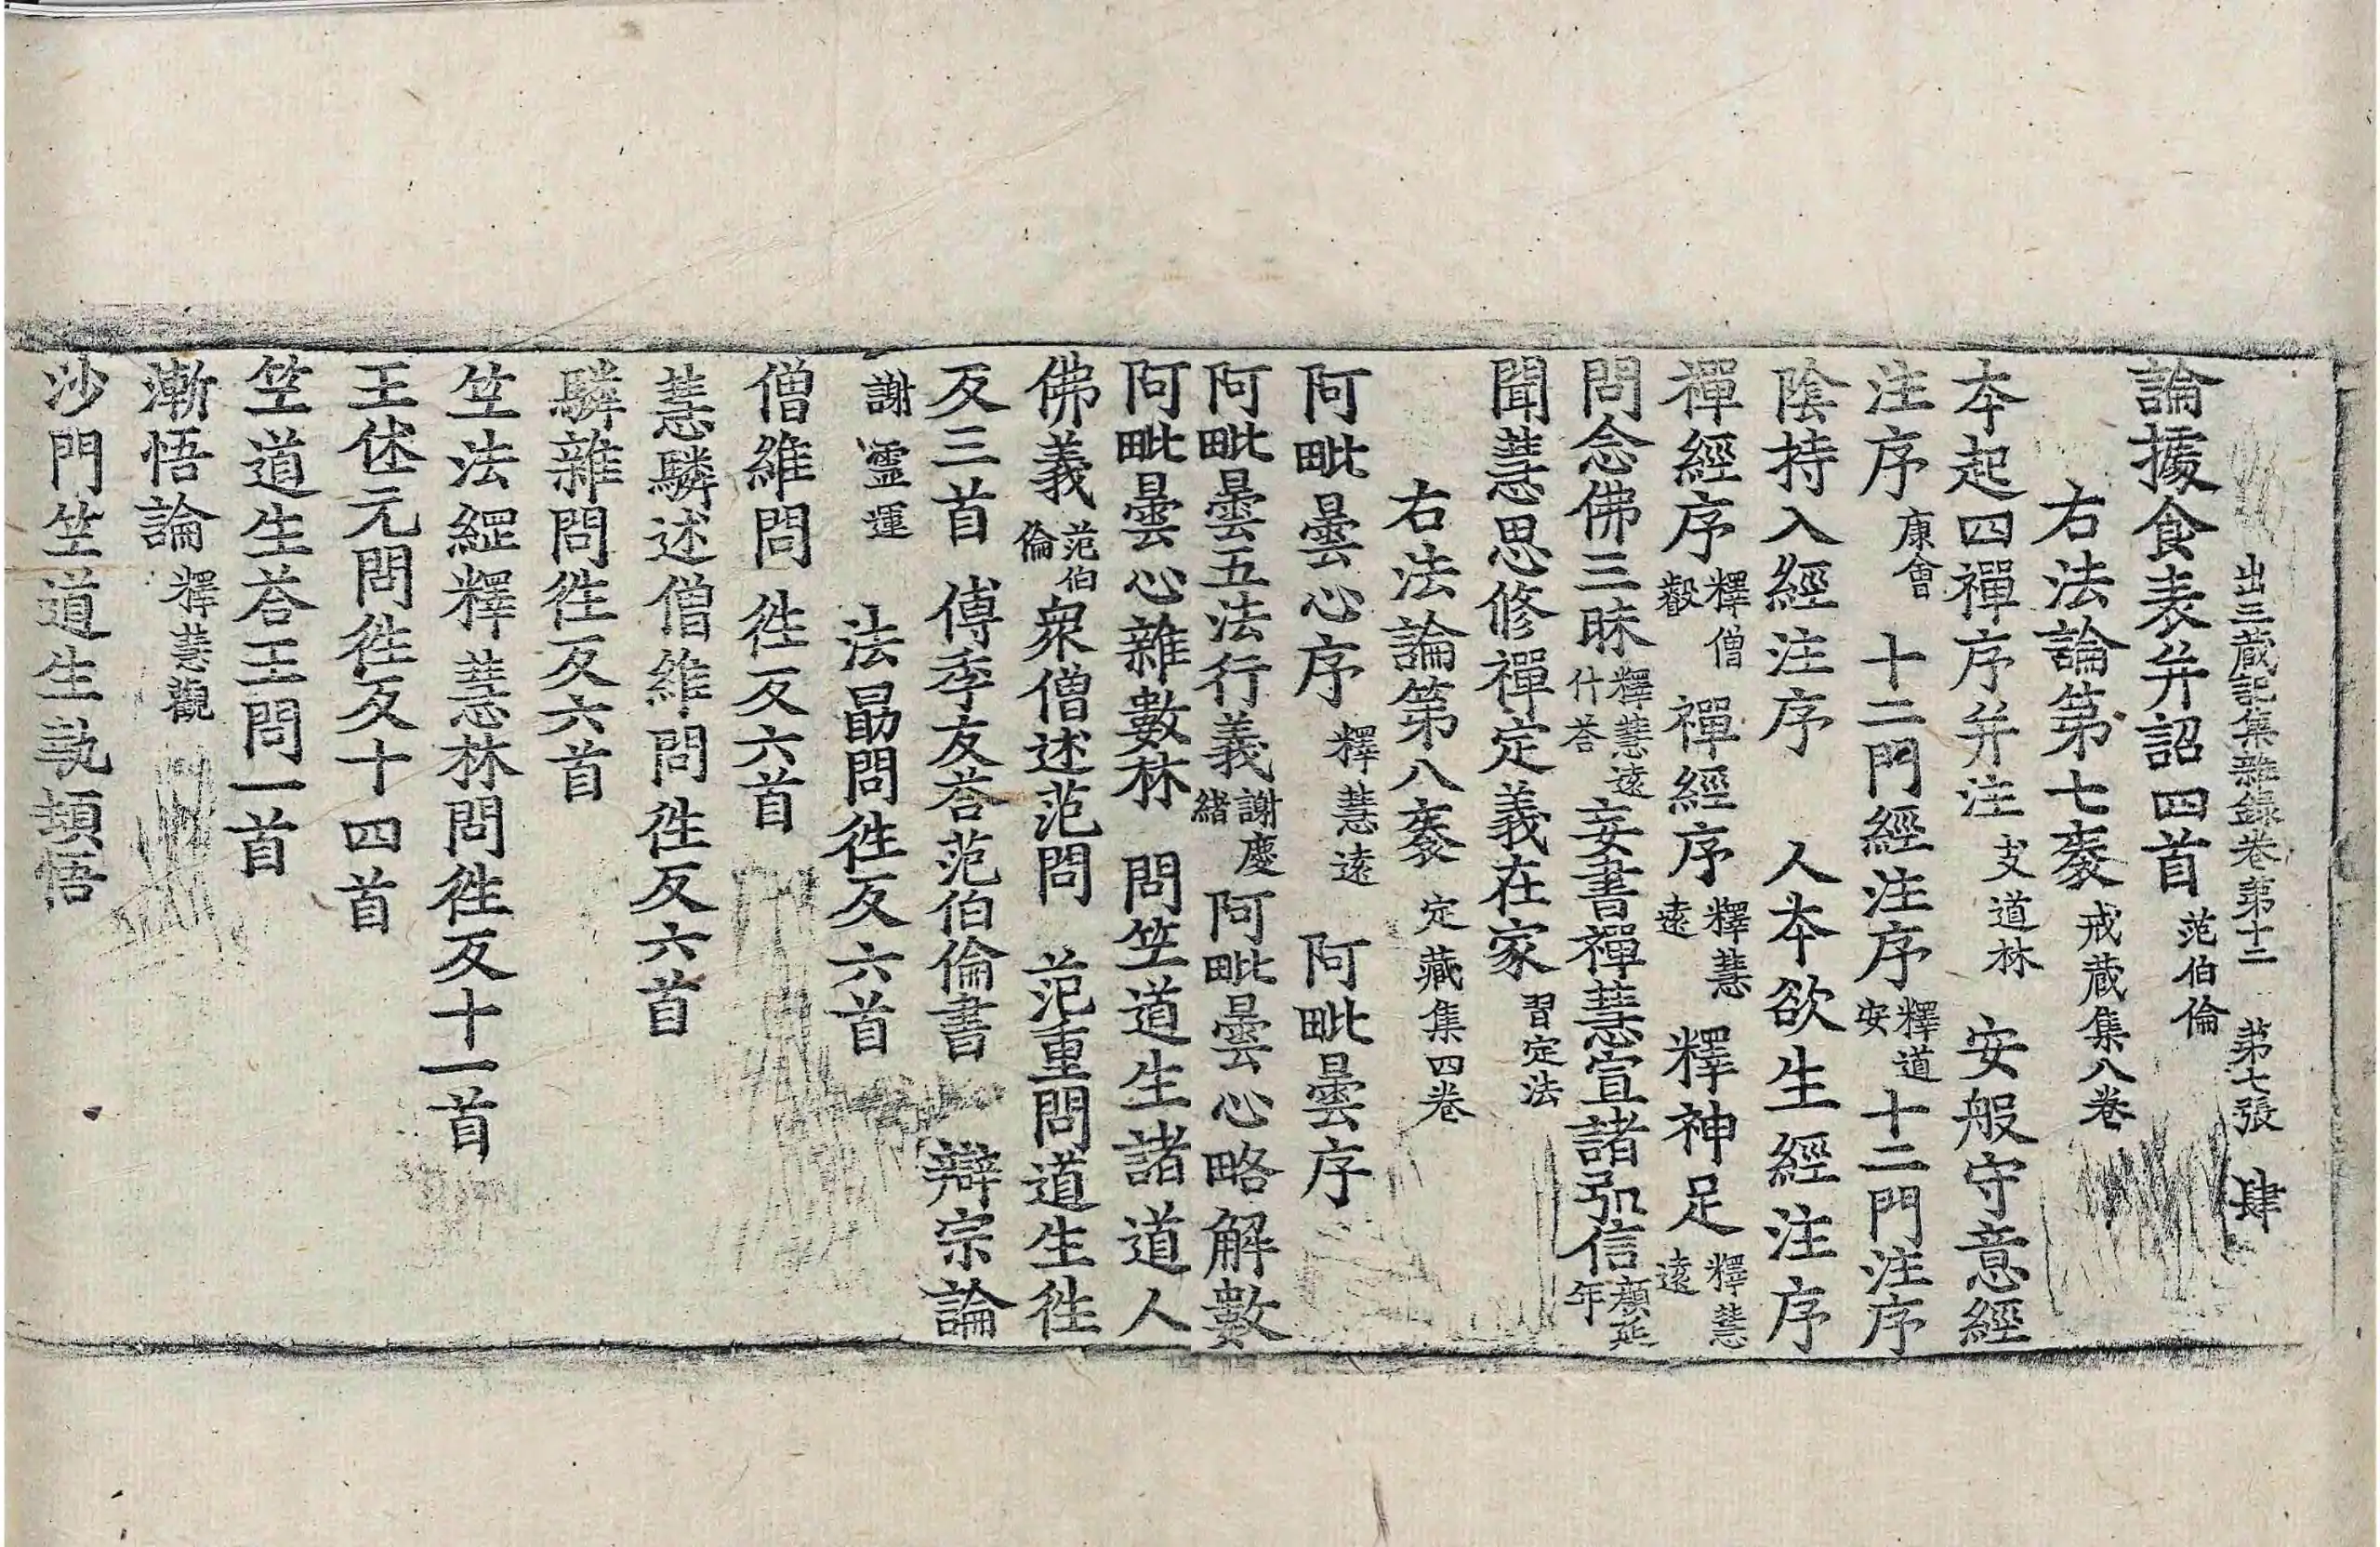 出三藏記集雜録卷第十二　第七張　肆
論據食表并詔四首 范伯倫
右法論第七袠 戒藏集八卷
本起四禪序并注 支道林 安般守意經
注序 康會 十二門經注序 釋道安 十二門注序
陰持入經注序 人本欲生經注序
禪經序 釋僧叡 禪經序 釋慧遠 釋神足 釋慧遠
問念佛三昧 釋慧遠什荅 妄書禪慧宣諸弘信 顏延年
聞慧思修禪定義在家 習定法
右法論第八袠 定藏集四卷
阿毗曇心序 釋慧遠 阿毗曇序
阿毗曇五法行義 謝慶緒 阿毗曇心略解數
阿毗曇心雜數林 問竺道生諸道人
佛義 范伯倫 衆僧述范問 范重問道生徃
反三首 傅季友荅范伯倫書 辯宗論
謝靈運 法勗問徃反六首
僧維問 徃反六首
慧驎述僧維問徃反六首
驎雜問徃反六首
竺法綱釋慧林問徃反十一首
王休元問徃反十四首
竺道生荅王問一首
漸悟論 釋慧觀
沙門竺道生執頓悟